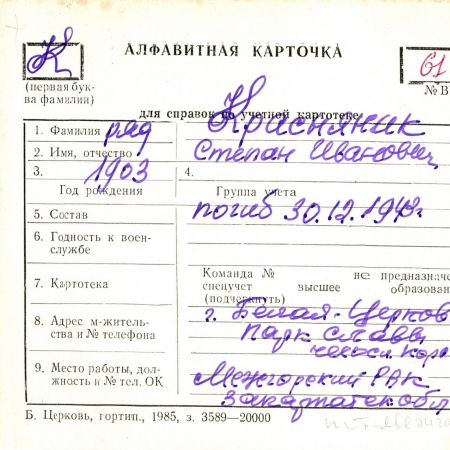 К
АЛФАВИТНАЯ КАРТОЧКА
61
(первая бук-
ва фамилии)
№ В
для справок по учетной картотеке
1. Фамилия ряд Красняник
2. Имя, отчество Степан Иванович
3. 1903
Год рождения
4.
Группа учета
5. Состав погиб 30.12.1943г.
6. Годность к воен-
службе
7. Картотека
Команда № не предназначе
спецучет высшее образован
(подчеркнуть)
8. Адрес м-житель-
ства и № телефона
г. Белая-Церковь
Парк Славы
9. Место работы, дол-
жность и № тел. ОК
Межгорский РАК
Закарпатск обл
Б. Церковь, гортип., 1985, з. 3589—20000